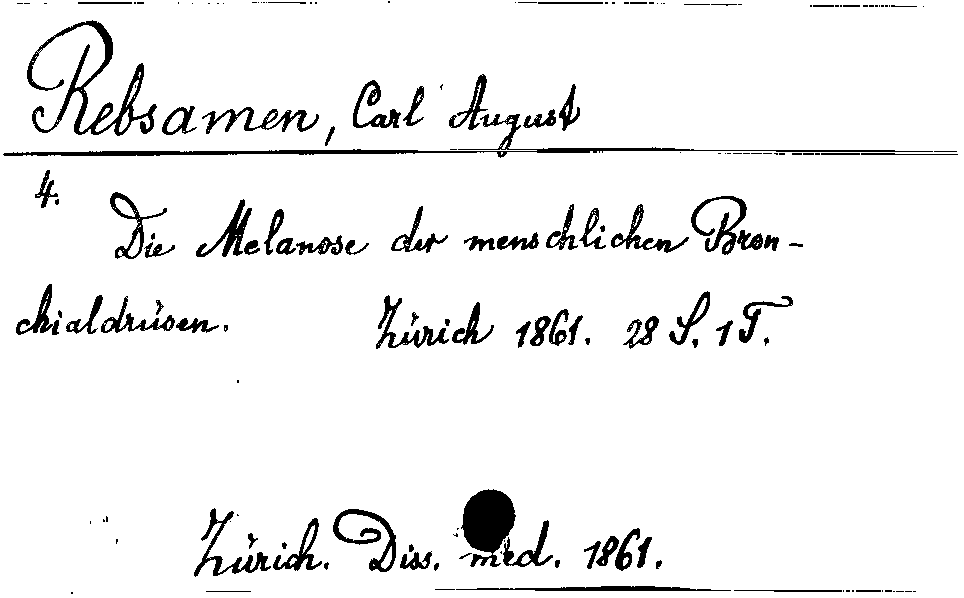 Rebsamen, Carl August
4.
Die Melanose der menschlichen Bron-
chialdrüsen. Zürich 1861. 28 S. 1 T.
Zürich. Diss. med. 1861.